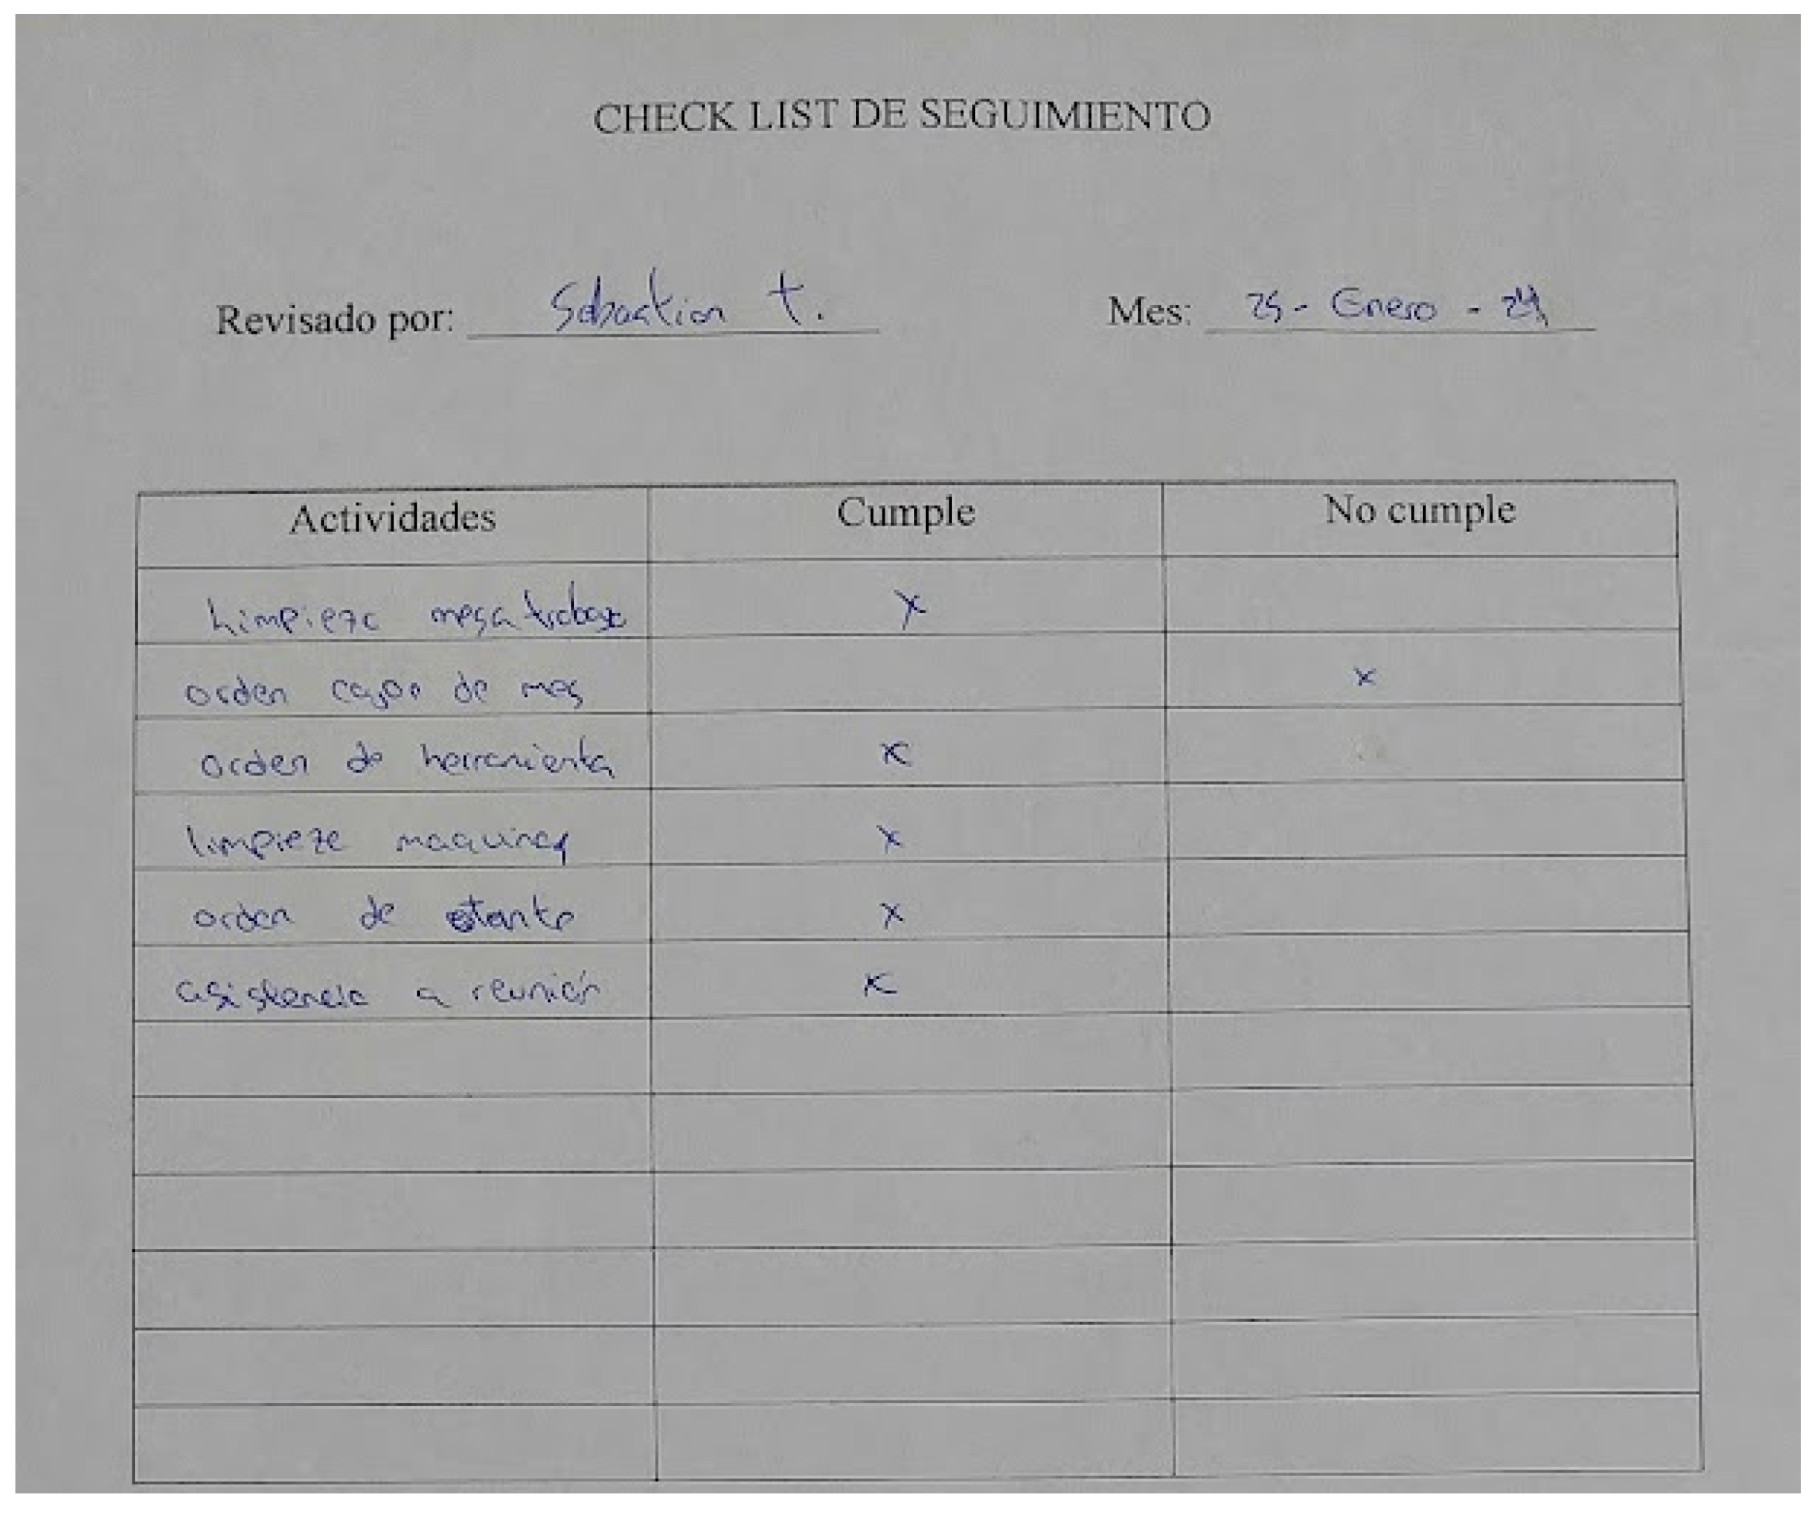 CHECK LIST DE SEGUIMIENTO
Revisado por: Sebastian t. Mes: 25 - Enero - 24
Actividades Cumple No cumple
Limpieza mesa trabajo x
orden cajon de mes x
orden de herramienta x
limpieze maquinas x
orden de estante x
asistencia a reunión x